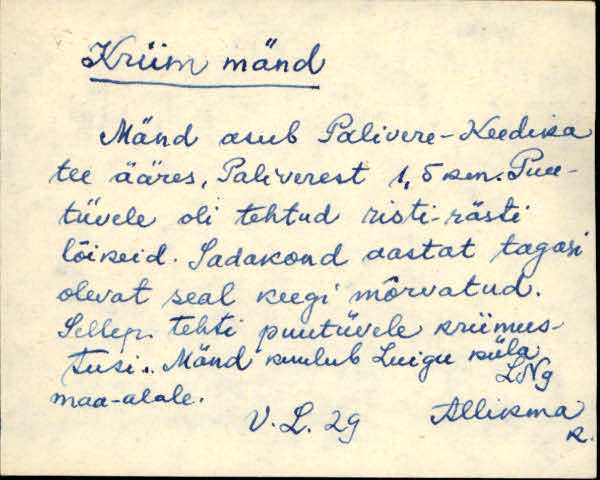 Kriim mänd
Mänd asub Palivere-Keedika
tee ääres, Paliverest 1,5 km. Puu-
tüvele oli tehtud risti-rästi
lõikeid. Sadakond aastat tagasi
olevat seal keegi mõrvatud.
Sellep. tehti puutüvele kriimus-
tusi. Mänd kuulub Luigu küla
LNg
maa-alale.
V. L. 29 Allikma
k.